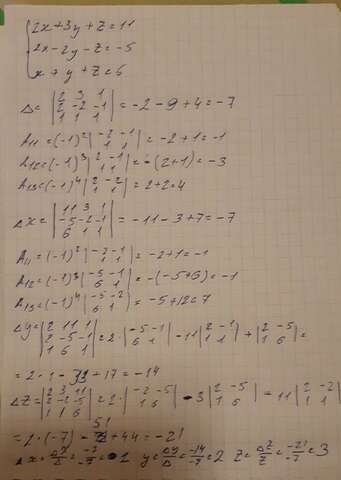 2x+3y+z=11
2x-2y-z=-5
x+y+z=6
Δ= |2 3 1; 2 -2 -1; 1 1 1| = -2-9+4=-7
A11=(-1)² |-2 -1; 1 1| = -2+1=-1
A12=(-1)³ |2 -1; 1 1| = -(2+1)=-3
A13=(-1)⁴ |2 -2; 1 1| = 2+2=4
Δx= |11 3 1; -5 -2 -1; 6 1 1| = -11-3+7=-7
A11=(-1)² |-2 -1; 1 1| = -2+1=-1
A12=(-1)³ |-5 -1; 6 1| = -(-5+6)=-1
A13=(-1)⁴ |-5 -2; 6 1| = -5+12=7
Δy= |2 11 1; 2 -5 -1; 1 6 1| = 2· |-5 -1; 6 1| -11 |2 -1; 1 1| + |2 -5; 1 6| =
=2·1-33+17=-14
Δz= |2 3 11; 2 -2 -5; 1 1 6| = 2· |-2 -5; 1 6| -3 |2 -5; 1 6| = 11 |2 -2; 1 1|
=2·(-7)-51+44=-21
Δx=Δx/Δ=-7/-7=1 y=Δy/Δ=-14/-7=2 z=Δz/z=-21/-7=3